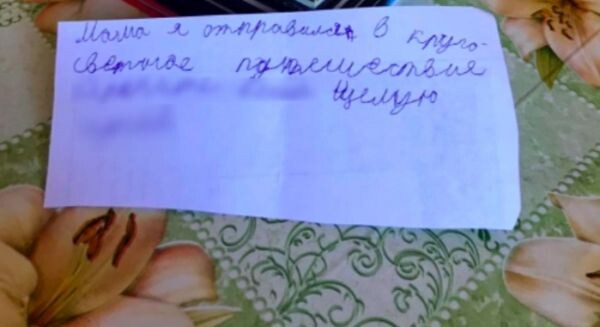 Мама я отправился в круго-
светное путешествие
Целую